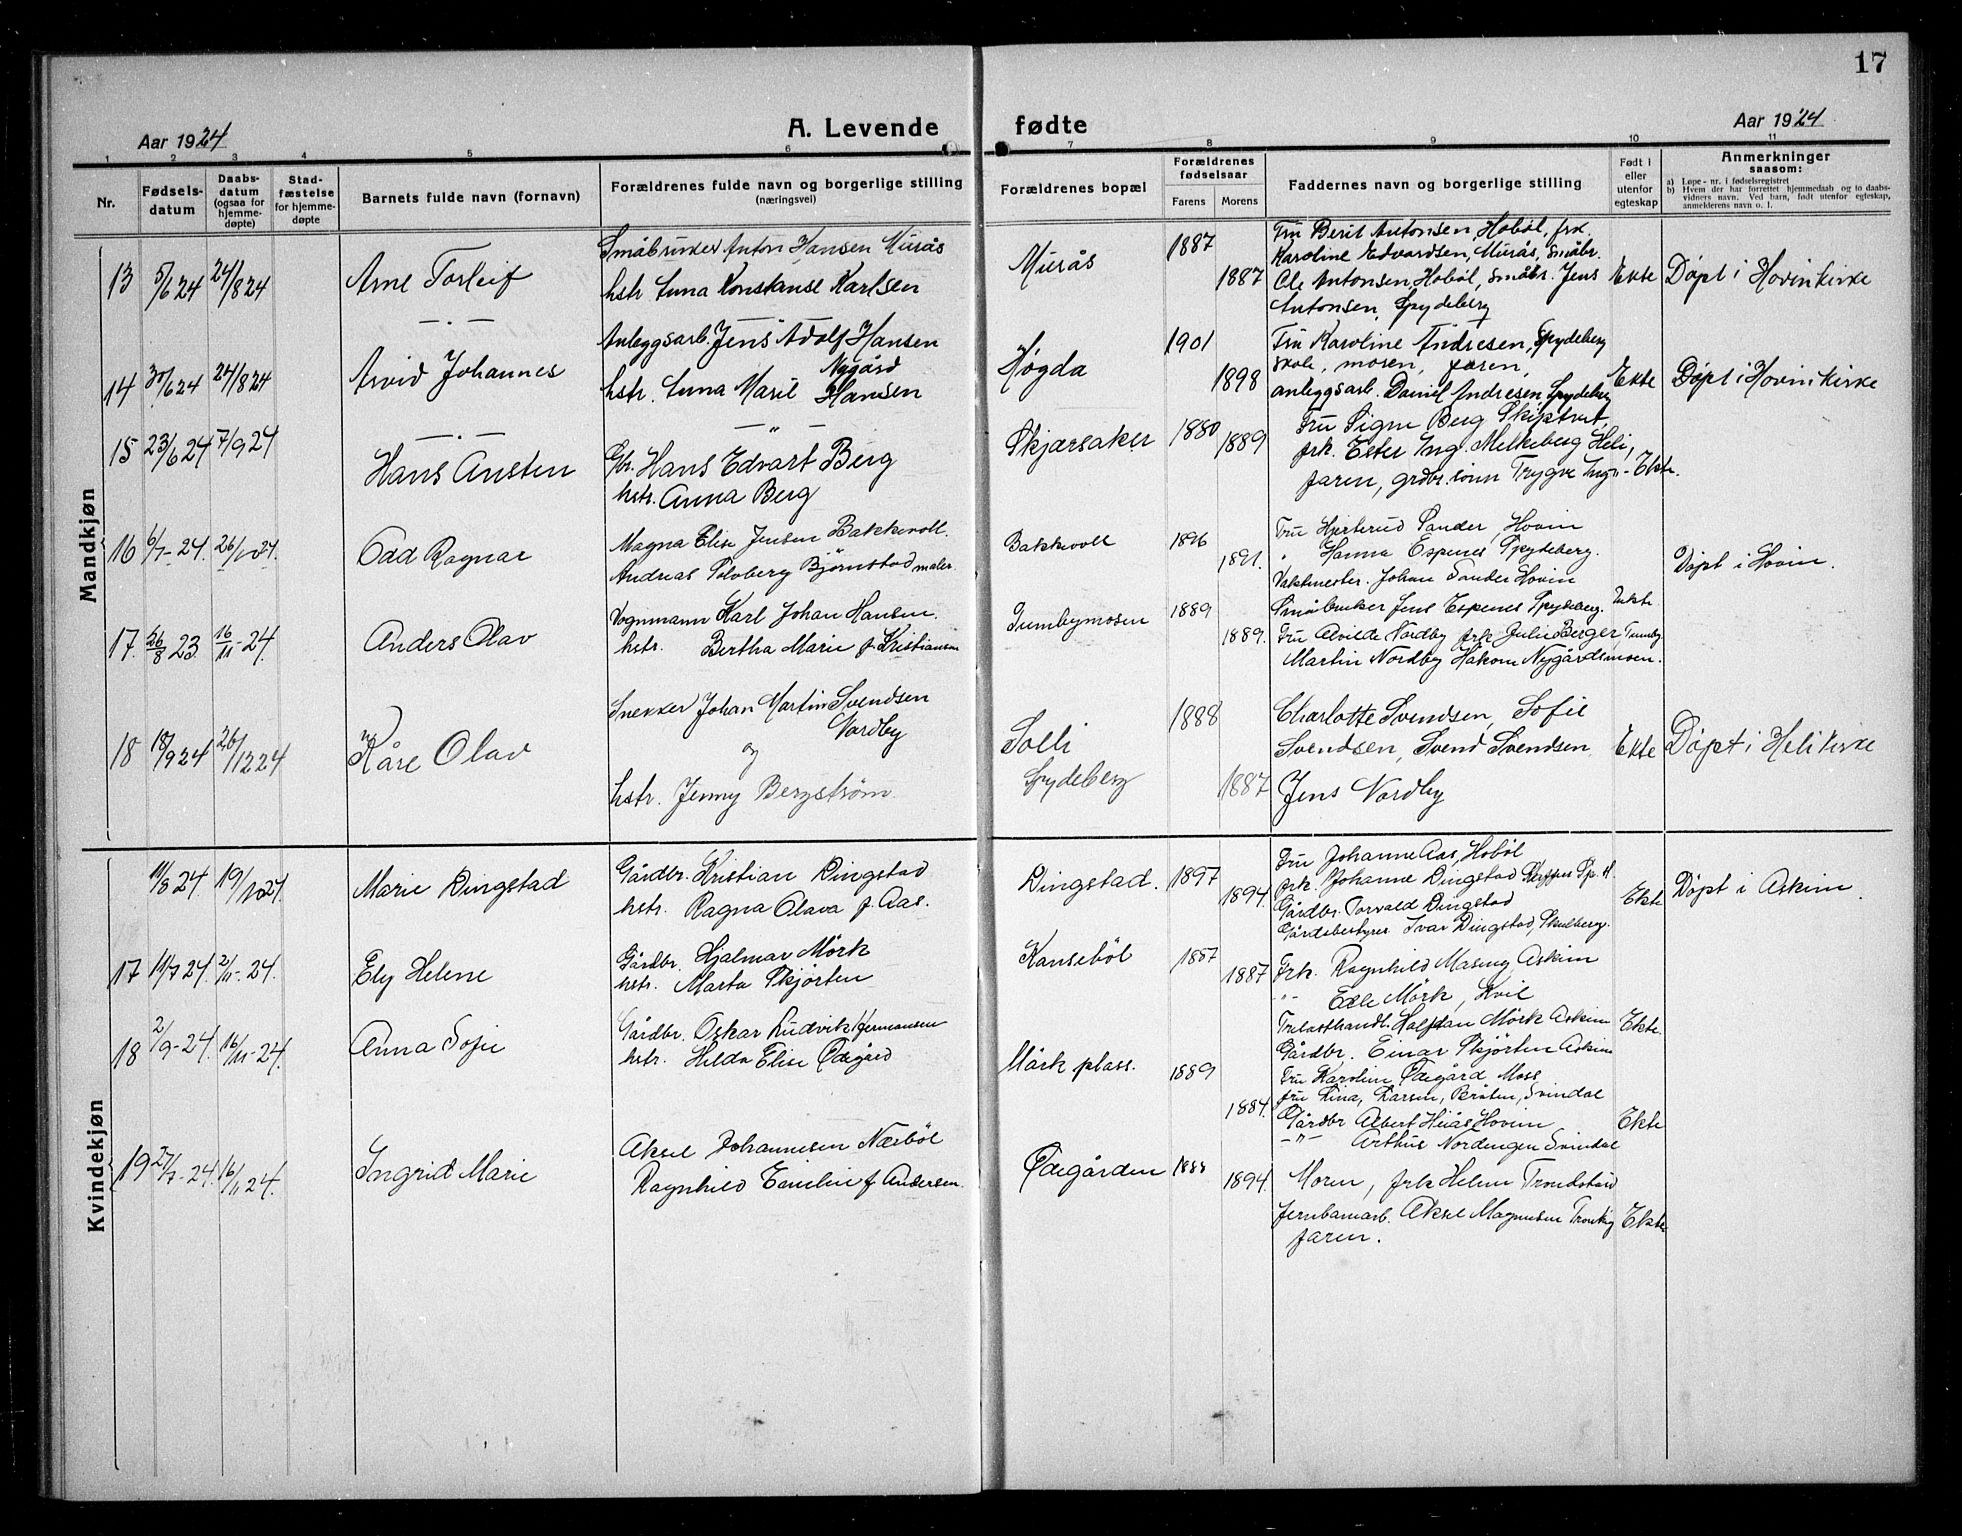 17
Aar 1924
A. Levende
fødte
Aar 1924
1 2 3 4 5 6 7 8 9 10 11
Nr.
Fødsels-
datum
Daabs-
datum
(ogsaa for
hjemme-
døpte)
Stad-
fæstelse
for hjemme-
døpte
Barnets fulde navn (fornavn)
Forældrenes fulde navn og borgerlige stilling
(næringsvei)
Forældrenes bopæl
Forældrenes
fødselsaar
Farens Morens
Faddernes navn og borgerlige stilling
Født i
eller
utenfor
egteskap
Anmerkninger
saasom:
a) Løpe-nr. i fødselsregistret
b) Hvem der har forrettet hjemmedaab og to daabs-
vidners navn. Ved barn, født utenfor egteskap,
anmelderens navn o. l.
Mandkjøn
13 5/6 24 24/8 24 Arne Torleif
Småbruker Anton Hansen Murås
hstr Anna Konstanse Karlsen
Murås 1887 1887
Fru Berit Antonsen, Hobøl, frk.
Karoline Edvardsen, Murås, småbr.
Ole Antonsen, Hobøl, småbr. Jens
Antonsen, Spydeberg
Ekte Døpt i Hovin kirke
14 30/6 24 24/8 24 Arvid Johannes
Anleggsarb. Jens Adolf Hansen
Nygård
hstr. Anna Maril Hansen
Høgda 1901 1898
Fru Karoline Andresen, Spydeberg
skole, moren, faren,
anleggsarb. Daniel Andresen, Spydeberg
Ekte Døpt i Hovin kirke
15 23/6 24 7/9 24 Hans Austen
Gbr. Hans Edvart Berg
hstr. Anna Berg
Skjærsaker 1880 1889
Fru Signe Berg Skiptvet,
frk. Ester Ing. Melkeberg Heli,
faren, grdbr. sønn Trygve Ing. - Ekte.
16 6/7 - 24. 26/10 24. Odd Ragnar
Magna Elise Jensen Bakkevoll
Andreas Solberg Bjørnstad maler.
Bakkevoll 1896 1891.
Fru Hjerterud Sander, Hovin
" Hanna Espenes Spydeberg.
Vaktmester. Johan Sander Hovin
Småbruker Jens Espenes Spydeberg. Uekte
Døpt i Hovin.
17. 26/8 23 16/11 - 24. Anders Olav
Vognmann Karl Johan Hansen.
hstr. Bertha Marie f. Kristiansen
Tumbymosen 1889 1889.
Fru Alvilde Nordby frk Julie Berger, Tumby
Martin Nordby Håkon Nygårdsmosen.
18 18/9 24 26/12 24 Kåre Olav
Snekker Johan Martin Svendsen
Nordby
og
hstr. Jenny Bergstrøm.
Solli
Spydeberg
1888 1887
Charlotte Svendsen, Sofie
Svendsen, Svend Svendsen
Jens Nordby
Ekte Døpt i Heli kirke
Kvindekjøn
11/8 24 19/10 24. Marie Dingstad
Gårdbr. Kristian Dingstad
hstr. Ragna Olava f. Aas.
Dingstad. 1897 1894
Fru Johanne Aas, Hobøl
Frk. Johanne Dingstad
Gårdbr. Torvald Dingstad
Gårdsbestyrer Ivar Dingstad, Skulberg.
Ekte Døpt i Askim
17 14/7 24. 2/11 - 24. Ely Helene
Gårdbr. Hjalmar Mörk
hstr. Marta Skjörten
Kansebøl 1887 1887
Frk. Ragnhild Masing Askim
" Edle Mörk, Kvil
Trelasthandl. Halfdan Mörk Askim
Gårdbr. Einar Skjörten Askim
Ekte.
18 2/9 - 24. 16/11 - 24. Anna Sofie
Gårdbr. Oskar Ludvik Hermansen
hstr. Hilda Elise Ødegård
Mörk plass. 1889 1884.
Fru Karoline Ødegård Moss
fru Lina, Larsen, Bråten, Svindal
Gårdbr Albert Hiås Hovin
- " - Arthur Nordengen Svindal
Ekte
19 27/7 - 24. 16/11 24. Ingrid Marie
Aksel Johannesen Næsbøl
Ragnhild Emilie f Andersen.
Ødegården 1888 1894
Moren, frk Helene Trondstad
Jernbanearb. Aksel Magnusen
faren.
Ekte